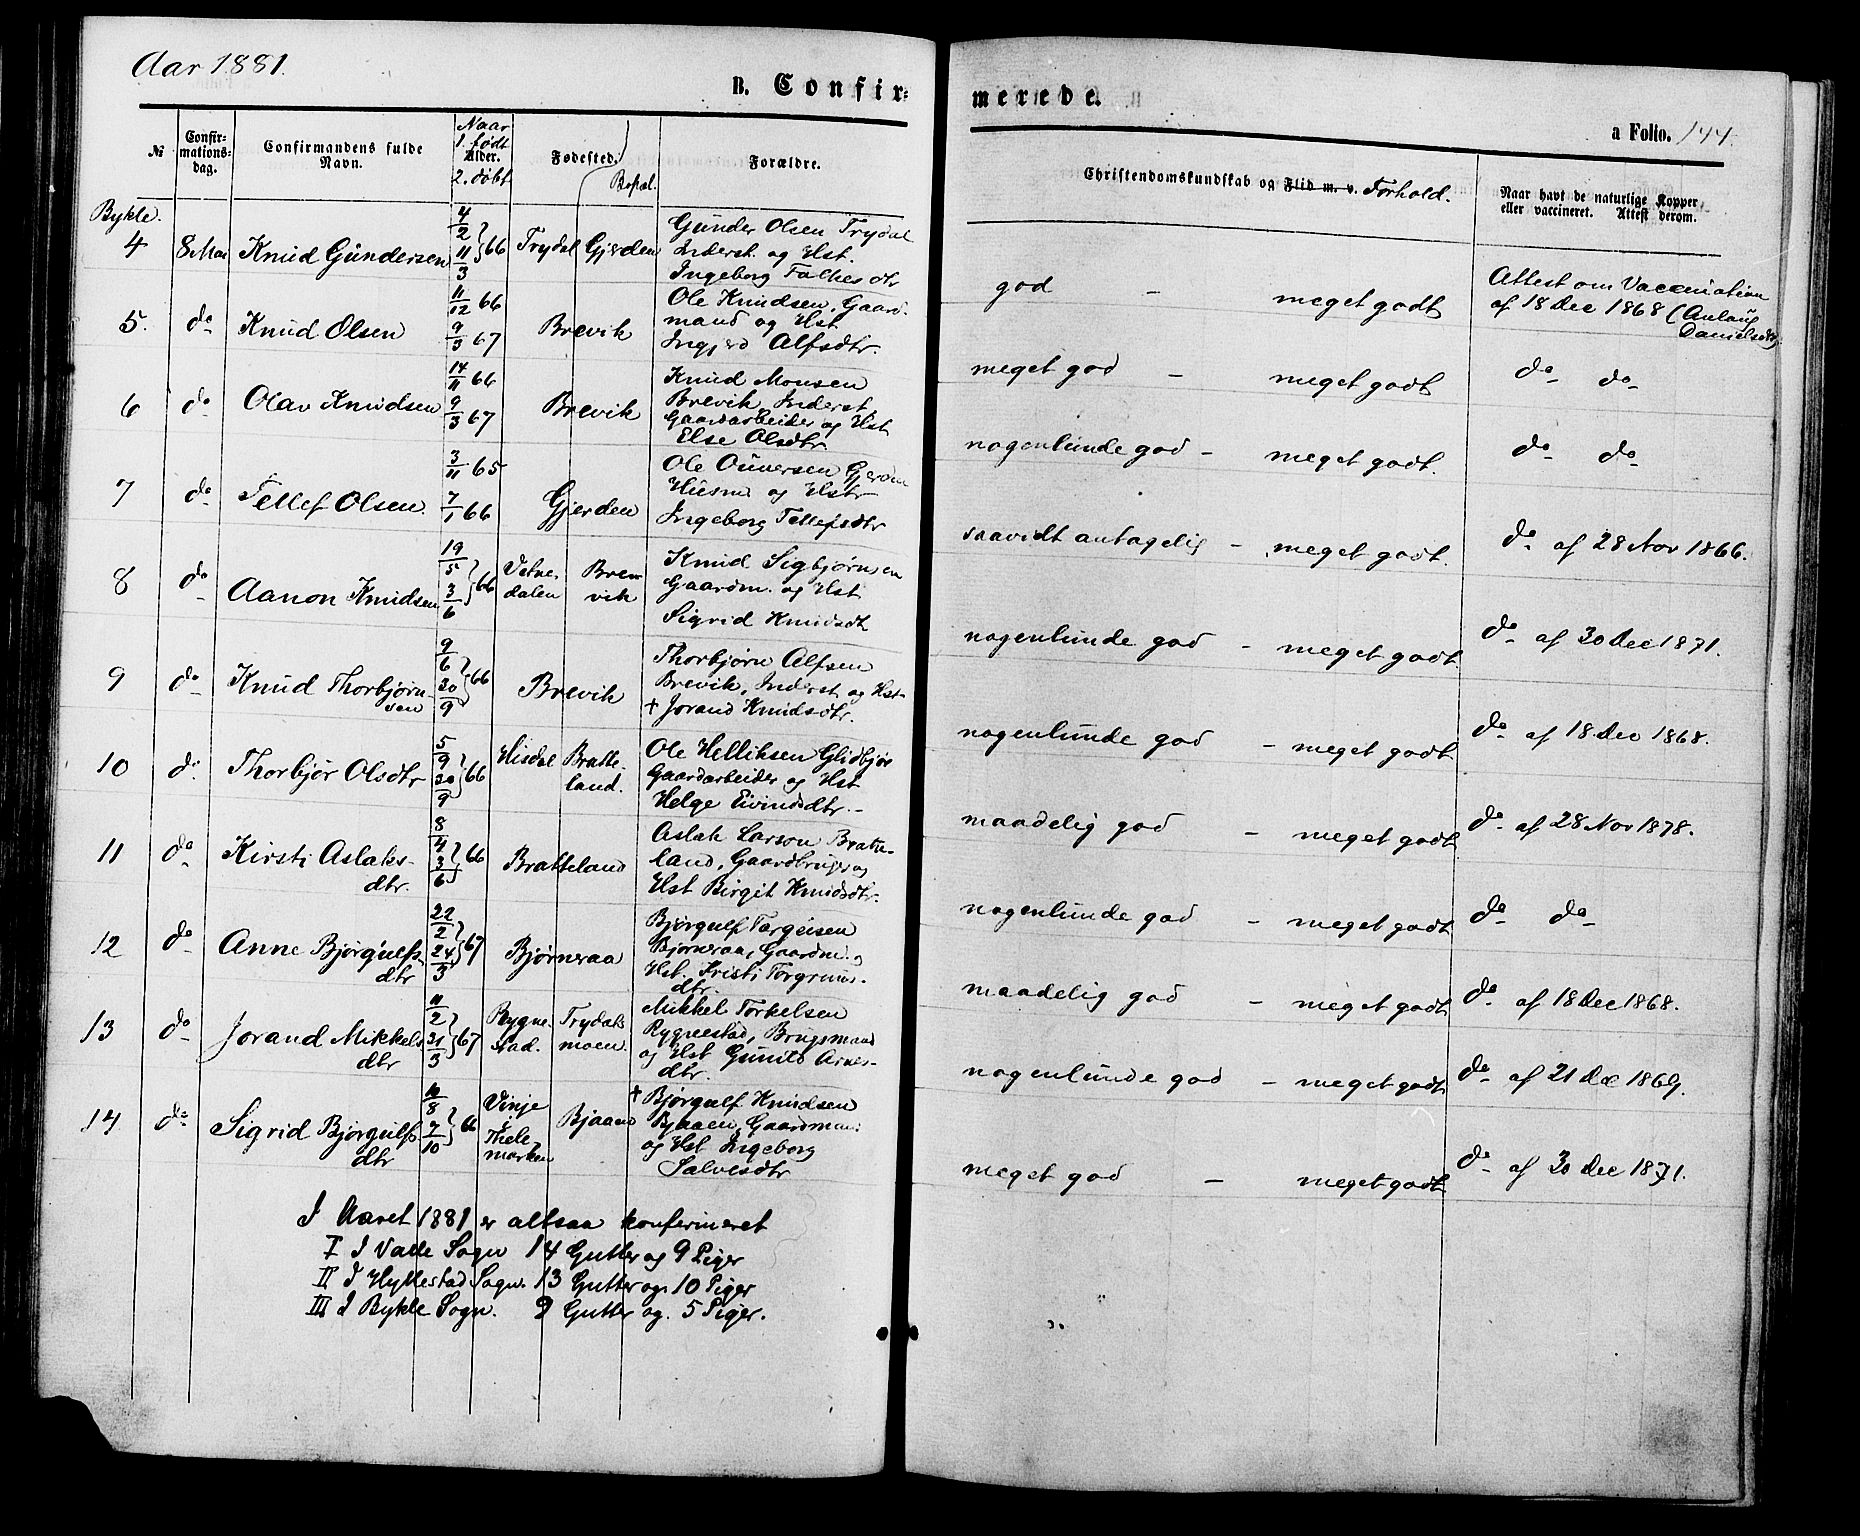 Aar 1881.
B. Confir-
merede.
a Folio. 144.
№
Confir-
mations-
dag.
Confirmandens fulde
Navn.
Naar
1. født
Alder.
2. døbt
Fødested.
Bopæl.
Forældre.
Christendomskundskab og Flid m. v. Forhold.
Naar havt de naturlige Kopper
eller vaccineret. Attest derom.
Bykle.
4 8 Mai Knud Gundersen 4/2 11/3 66 Trydal Gjerden
Gunder Olsen Trydal
Inderst. og Hst.
Ingeborg Folkesdtr
god - meget godt
Attest om Vaccination
af 18 Dec 1868 (Anlaug
Danielsdtr)
5. do Knud Olsen 11/12 66 9/3 67 Brevik
Ole Knudsen, Gaard-
mand og Hst
Ingjerd Alfsdtr.
meget god - meget godt
do do
6 do Olav Knudsen 14/11 66 9/3 67 Brevik
Knud Monsen
Brevik Inderst
Gaardarbeider og Hst
Else Olsdtr
nogenlunde god - meget godt.
do do
7 do Tellef Olsen. 3/11 65 7/1 66 Gjerden
Ole Gunersen Gjerden
Husmd og Hstr
Ingeborg Tellefsdtr
saavidt antagelig - meget godt.
do af 28 Nov 1866.
8 do Aanon Knudsen 19/5 3/6 66 Vetne-
dalen Bre-
vik
Knud Sigbjørnsen
Gaardm. og Hst
Sigrid Knudsdt
nogenlunde god - meget godt
do af 30 Dec 1871.
9 do Knud Thorbjørn-
sen 9/6 30/9 66 Brevik
Thorbjørn Alfsen
Brevik, Inderst og Hst
+ Jorand Knudsdtr.
nogenlunde god - meget godt
do af 18 Dec 1868.
10 do Thorbjør Olsdtr 5/9 30/9 66 Hisdal Bratte-
land.
Ole Helliksen Glidbjør
Gaardarbeider og Hst
Helge Eivindsdtr.-
maadelig god - meget godt
do af 28 Nov 1878.
11 do Kirsti Aslaks-
dtr. 8/4 3/6 66 Bratteland
Aslak Larson Bratte-
land, Gaardbruger og
Hst Birgit Knudsdtr.
nogenlunde god - meget godt
do do
12 do Anne Bjørgulfs-
dtr 22/2 24/3 67 Bjørneraa
Bjørgulf Targeisen
Bjørneraa, Gaardm. og
Hst. Kristi Torgrims-
dtr.
maadelig god - meget godt
do af 18 Dec 1868.
13 do Jorand Mikkels-
dtr 11/2 31/3 67 Rygne-
stad. Trydals
moen.
Mikkel Torkelsen
Rygnestad, Brugsmand
og Hst Gunild Arnes-
dtr.
nogenlunde god - meget godt
do af 21 Dec 1869.
14 do Sigrid Bjørgulfs
dtr 10/8 7/10 66 Vinje
i
Thele-
marken Bjaaen
+ Bjørgulf Knudsen
Bjaaen, Gaardmand
og Hst Ingeborg
Salvesdtr
meget god - meget godt
do af 30 Dec 1871.
I Aaret 1881 er altsaa konfirmeret
I I Valle Sogn 14 Gutter og 9 Piger
II I Hyllestad Sogn. 13 Gutter og 10 Piger
III I Bykle Sogn. 9 Gutter og. 5 Piger.